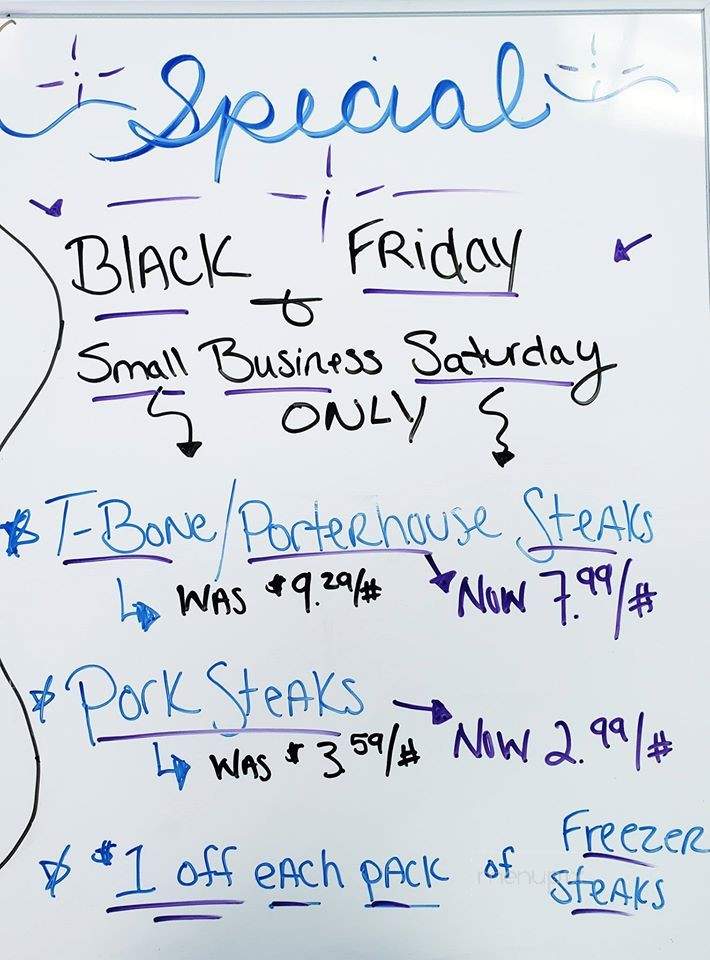 Special
Black Friday
&
Small Business Saturday
ONLY
T-Bone/Porterhouse Steaks
WAS $9.29/# NOW 7.99/#
Pork Steaks
WAS $3.59/# NOW 2.99/#
$1 off each pack of Freezer
Steaks